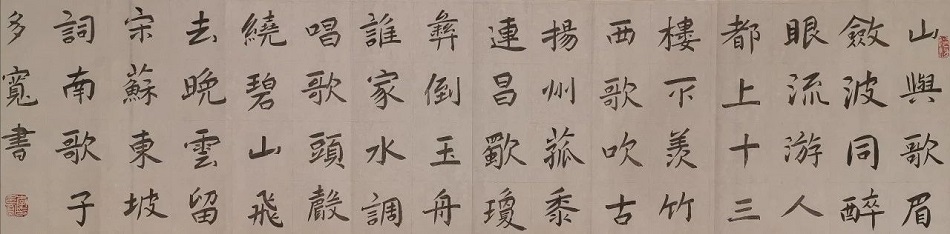 山與歌眉
斂波同醉
眼流游人
都上十三
樓不羨竹
西歌吹古
揚州菰黍
連昌歜瓊
彝倒玉舟
誰家水調
唱歌頭聲
繞碧山飛
去晚雲留
宋蘇東坡
詞南歌子
多寬書